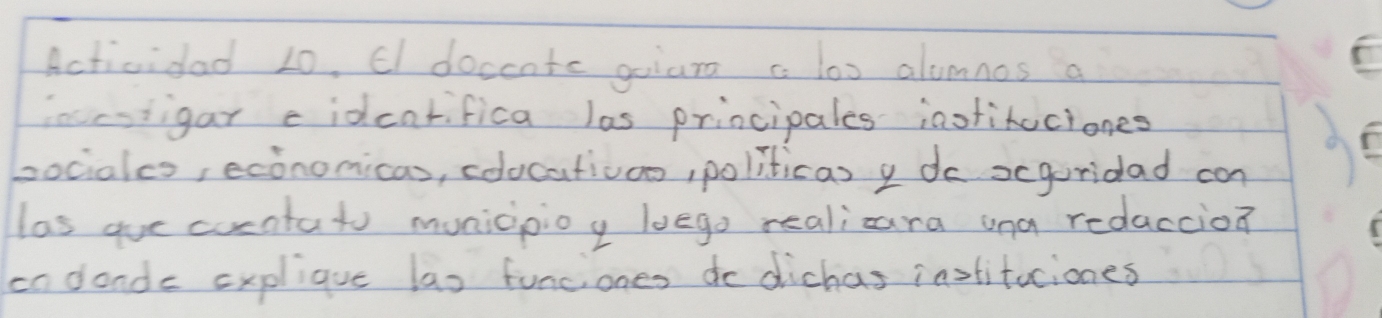 Actividad 10. El docente guiara a los alumnos a
investigar e identifica las principales instituciones
sociales, económicas, educativas, políticas y de seguridad con
las que cuenta tu municipio y luego realizara una redacción
en donde explique las funciones de dichas instituciones